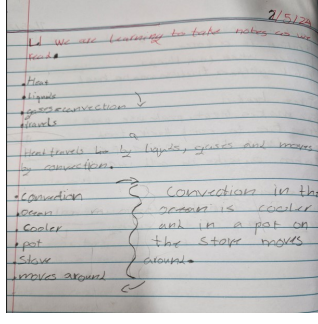 2/5/24
LI we are learning to take notes as we
read.
• Heat
• liquids
• gases convection
• travels
Heat travels by liquids, gases and moves
by convection.
• convection
• ocean
• Cooler
• pot
• Stove
• moves around
Convection in the
ocean is cooler
and in a pot on
the stove moves
around.